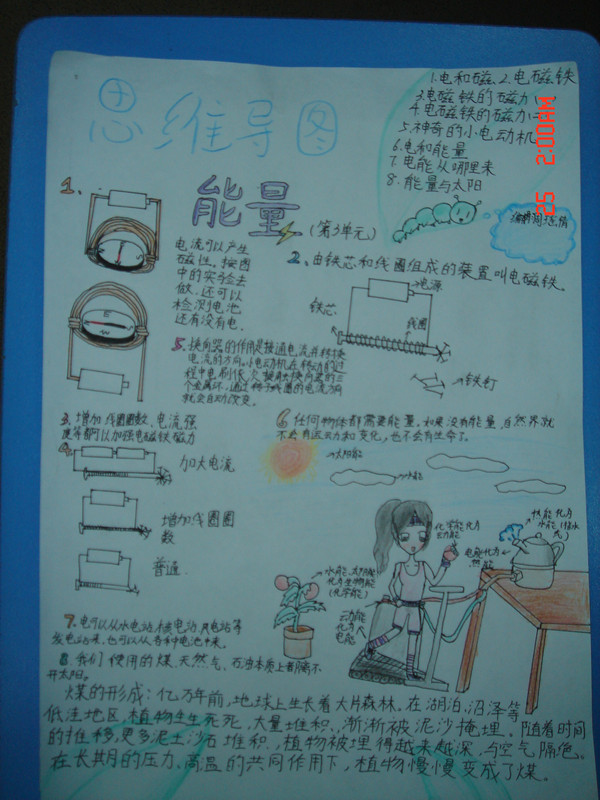 思维导图
1.电和磁、2.电磁铁
3.电磁铁的磁力一
4.电磁铁的磁力二
5.神奇的小电动机
6.电和能量
7.电能从哪里来
8.能量与太阳
能量
(第3单元)
1.
电流可以产生
磁性。按图
中的实验去
做,还可以
检测电池
还有没有电.
2.由铁芯和线圈组成的装置叫电磁铁。
电源
铁芯
线圈
铁钉
5.换向器的作用是接通电流并转换
电流的方向。
就会自动改变。
3.增加线圈圈数、电流强
度等都可以加强电磁铁磁力
加大电流
增加线圈圈
数
普通
6任何物体都需要能量。如果没有能量,自然界就
不会有运动和变化,也不会有生命了。
太阳能
水能
化学能化为
动能
电能化为
热能
水能、太阳能
化为生物能
(化学能)
动能
化为
电能
7.电可以从水电站、核电站、风电站等
发电站来,也可以从各种电池中来.
8.我们使用的煤、天然气、石油本质上都离不
开太阳。
煤的形成:亿万年前,地球上生长着大片森林。在湖泊、沼泽等
低洼地区,植物生生死死,大量堆积.,渐渐被泥沙掩埋。随着时间
的推移,更多泥土沙石堆积.,植物被埋得越来越深,与空气隔绝。
在长其月的压力、高温的共同作用下,植物慢慢变成了煤。
25 2:00AM